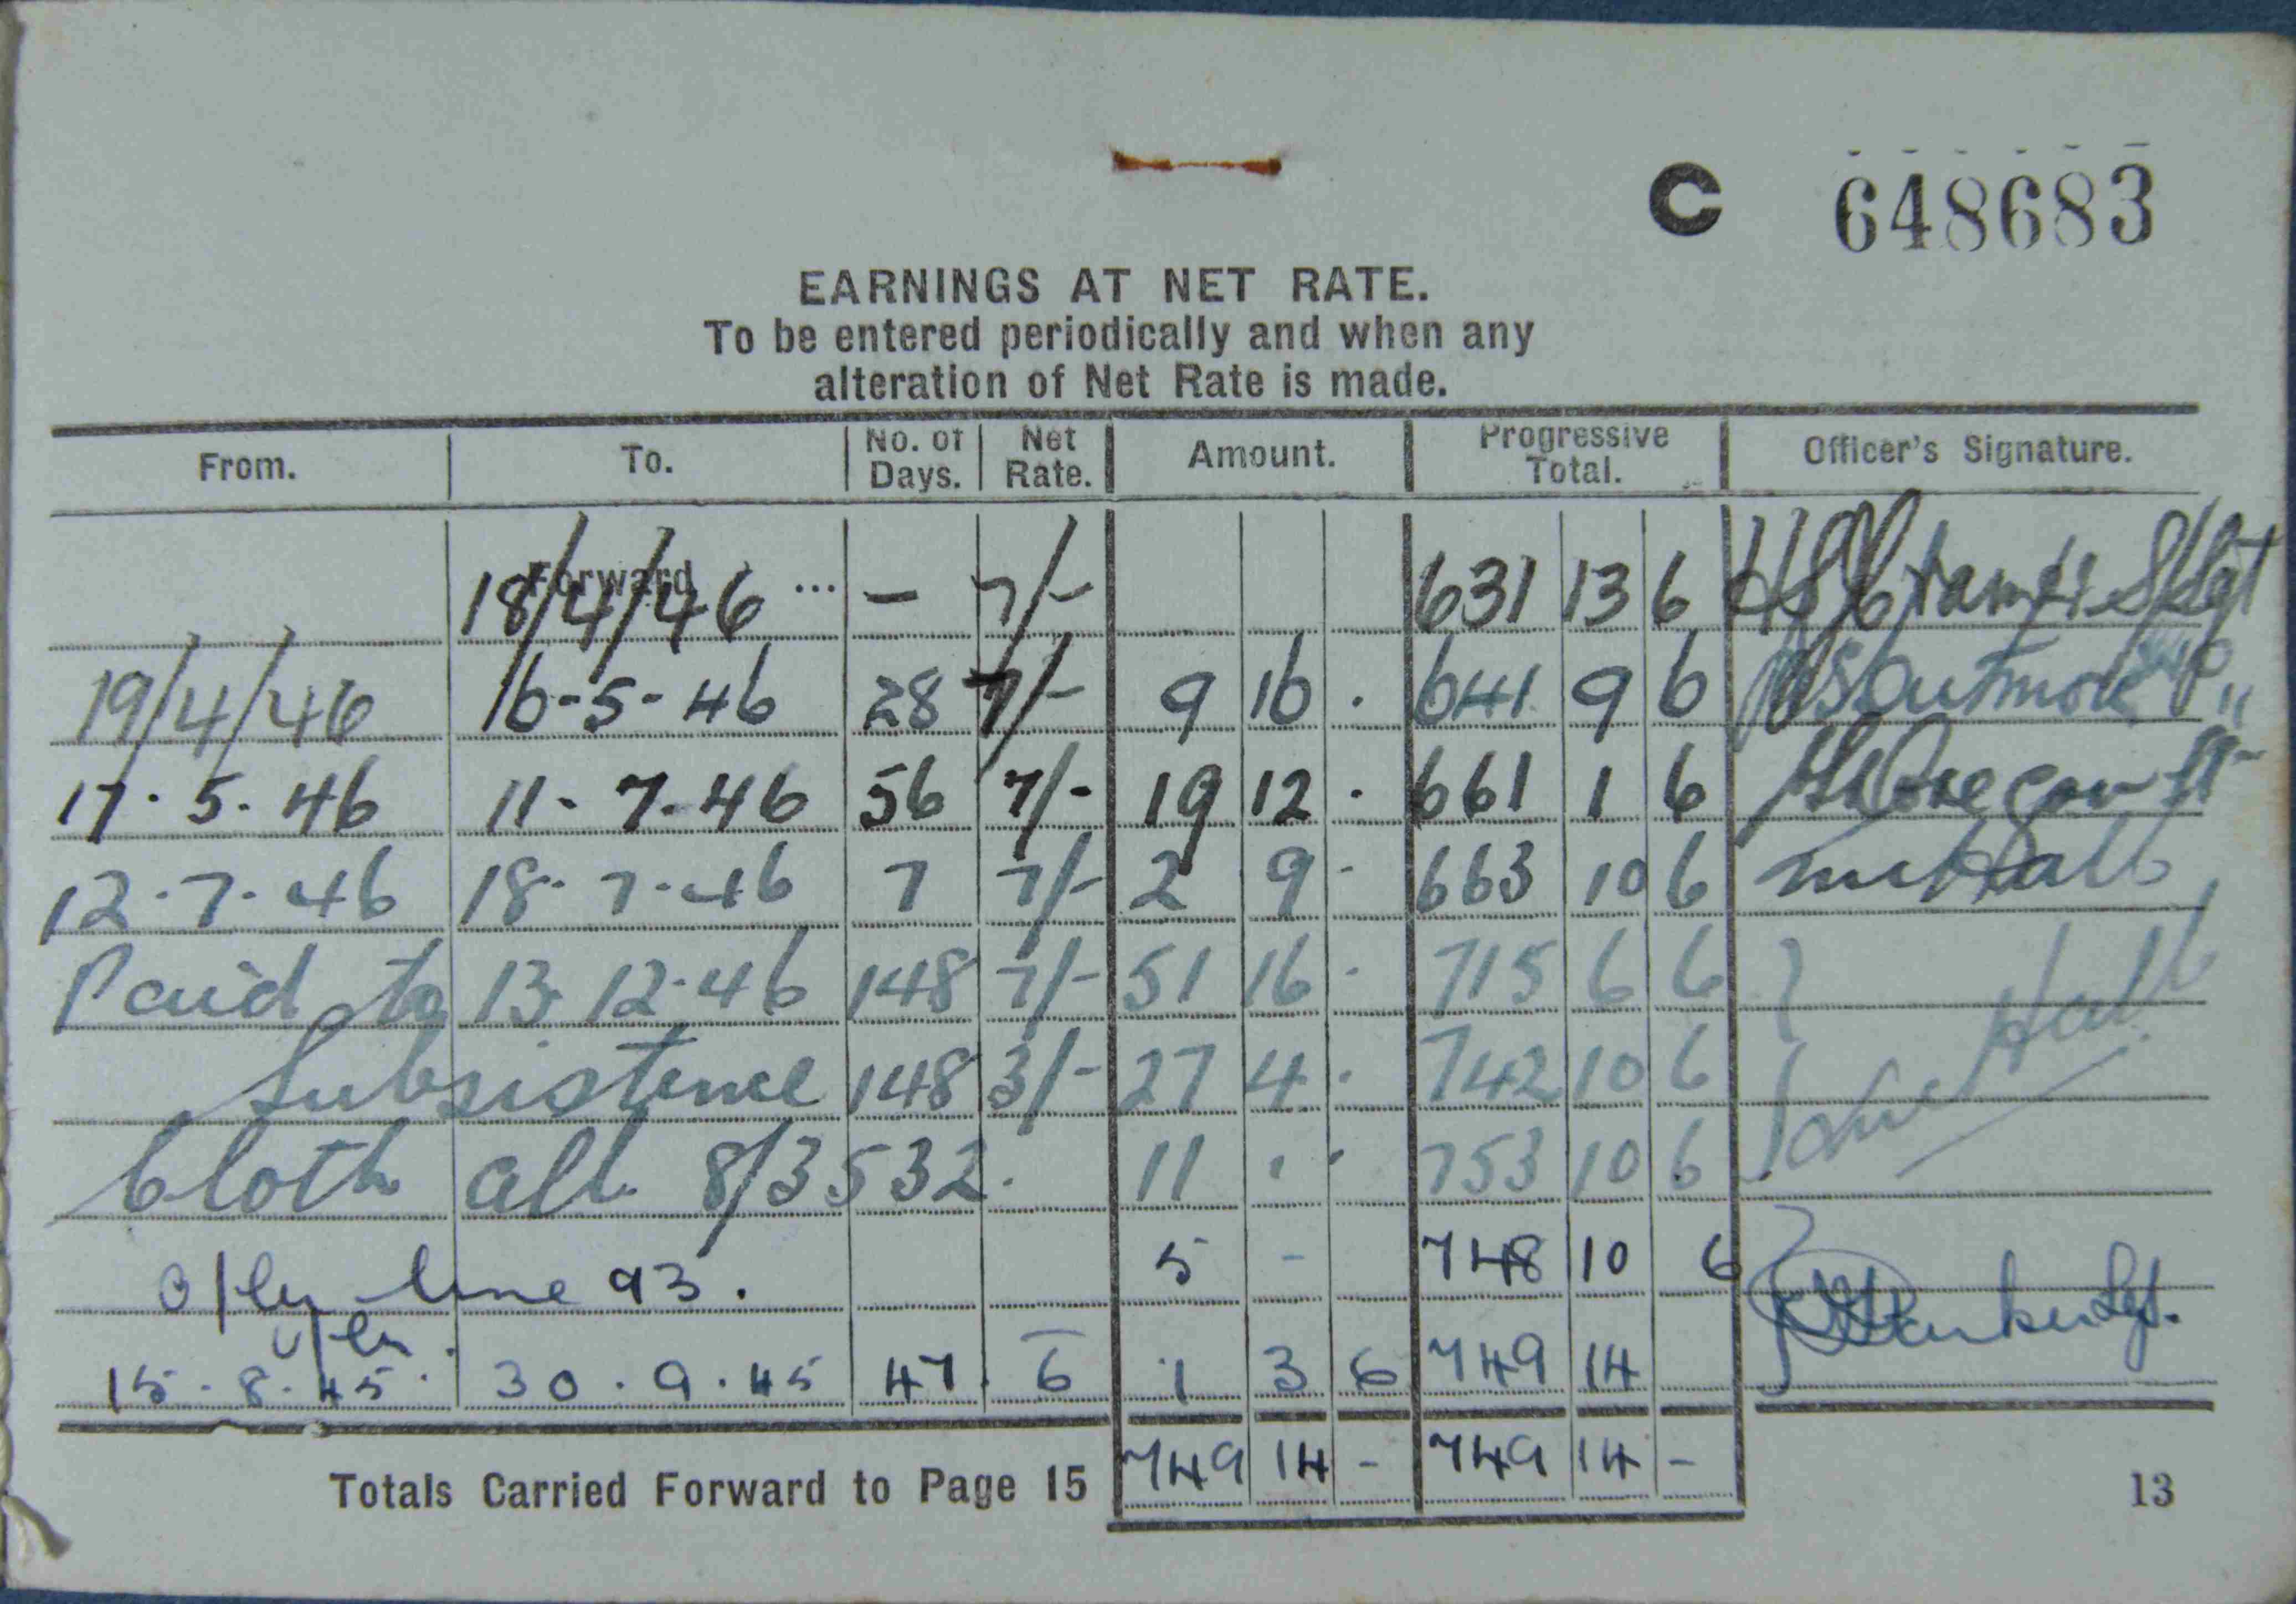 C 648683
EARNINGS AT NET RATE.
To be entered periodically and when any
alteration of Net Rate is made.
From. To. No. of Days. Net Rate. Amount. Progressive Total. Officer's Signature.
Forward ... 18/4/46 - 7/- 631 13 6
19/4/46 16-5-46 28 7/- 9 16 . 641 9 6
17.5.46 11-7-46 56 7/- 19 12 . 661 1 6
12.7.46 18.7.46 7 7/- 2 9 - 663 10 6
Paid to 13.12.46 148 7/- 51 16 . 715 6 6
Subsistence 148 3/- 27 4 . 742 10 6
Cloth all 8/3532. 11 . . 753 10 6
line 93. 5 - 748 10 6
15.8.45. 30.9.45 47. 6 1 3 6 749 14
Totals Carried Forward to Page 15 749 14 - 749 14 -
13